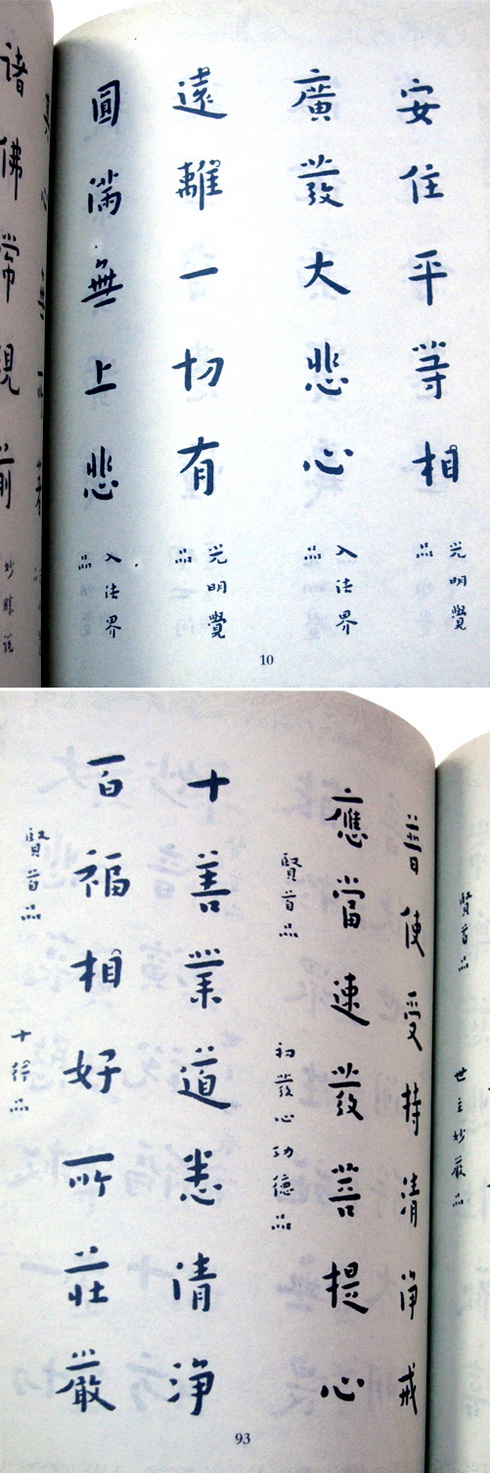 安住平等相
光明覺品
廣發大悲心
入法界品
遠離一切有
光明覺品
圓滿無上悲
入法界品
諸佛常現前
10
世主妙嚴品
賢首品
普使受持清淨戒
應當速發菩提心
初發心功德品
賢首品
十善業道悉清淨
一百福相好所莊嚴
十行品
賢首品
93